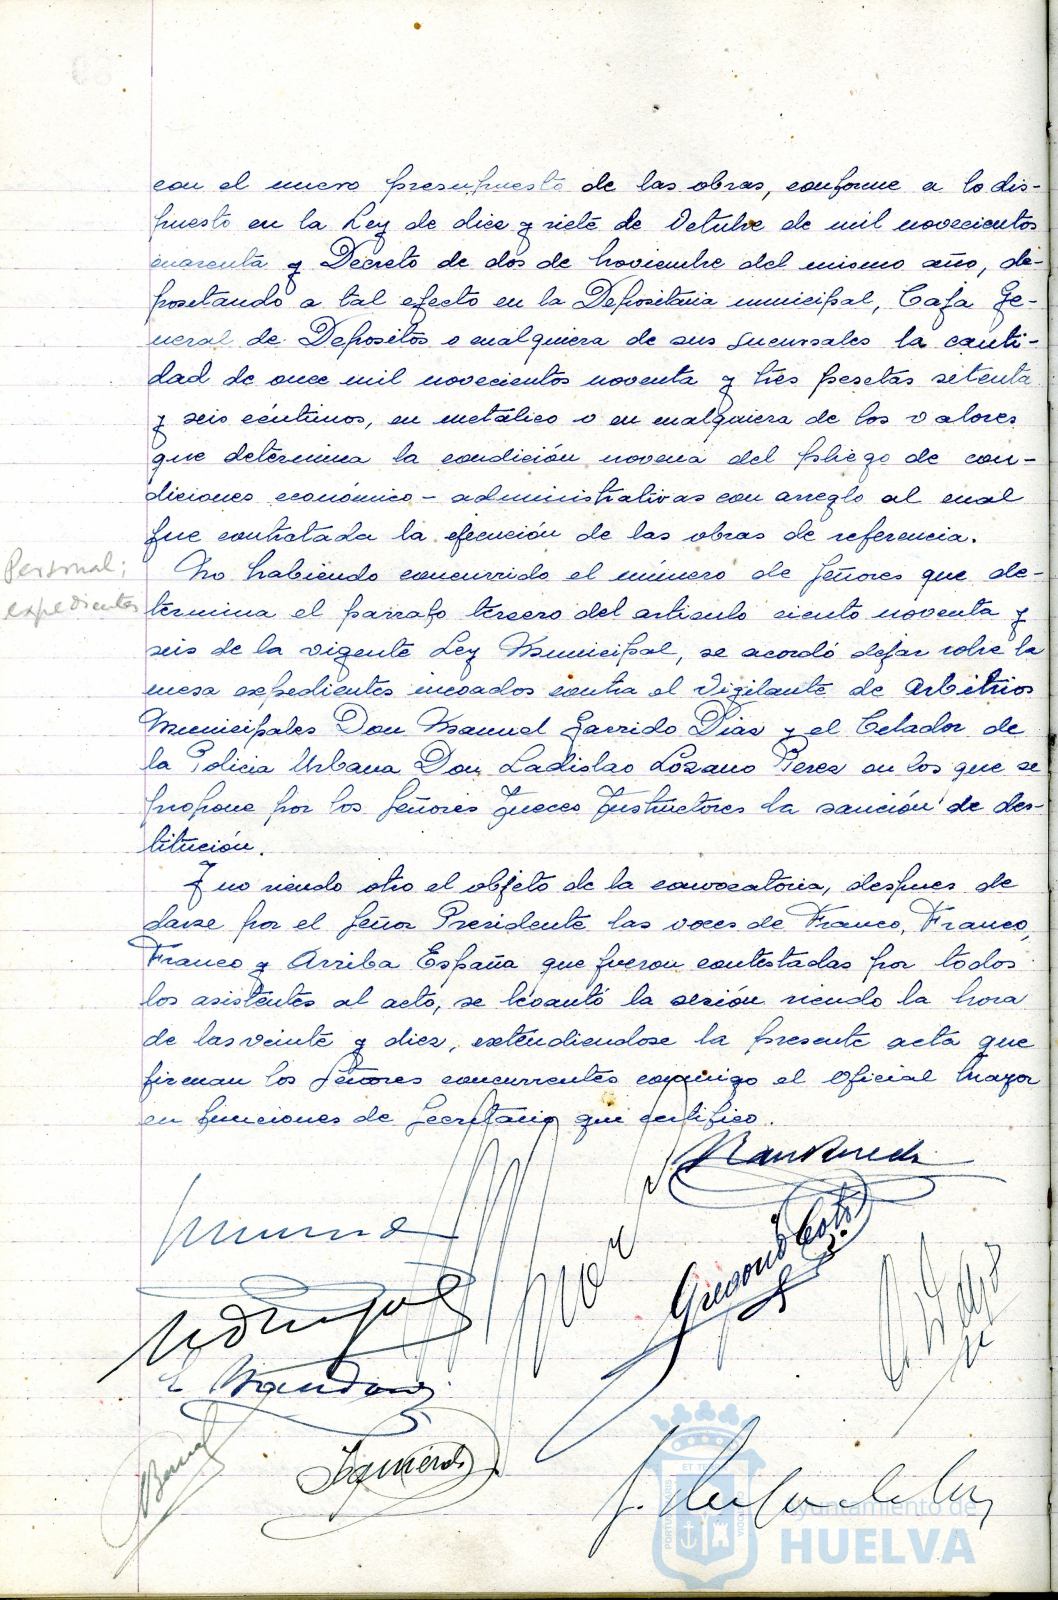 con el nuevo presupuesto de las obras, conforme a lo dis-
puesto en la Ley de diez y siete de Octubre de mil novecientos
cuarenta y Decreto de dos de noviembre del mismo año, de-
positando a tal efecto en la Depositaria municipal, Caja Ge-
neral de Depositos o cualquiera de sus sucursales la canti-
dad de once mil novecientos noventa y tres pesetas setenta
y seis céntimos, en metálico o en cualquiera de los valores
que determina la condición novena del pliego de con-
diciones económico-administrativas con arreglo al cual
fue contratada la ejecución de las obras de referencia.
Personal;
expedientes
No habiendo concurrido el número de Señores que de-
termina el parrafo tercero del articulo ciento noventa y
seis de la vigente Ley Municipal, se acordó dejar sobre la
mesa expedientes incoados contra el Vigilante de Arbitrios
Municipales Don Manuel Garrido Dias y el Celador de
la Policia Urbana Don Ladislao Lozano Perez en los que se
propone por los Señores Jueces Instructores la sanción de des-
titución.
Y no siendo otro el objeto de la convocatoria, despues de
darse por el Señor Presidente las voces de Franco, Franco,
Franco y Arriba España que fueron contestadas por todos
los asistentes al acto, se levantó la sesión siendo la hora
de las veinte y diez, extendiendose la presente acta que
firman los Señores concurrentes conmigo el Oficial Mayor
en funciones de Secretario que certifico.
Gregorio
Izquierdo
Ayuntamiento de
HUELVA